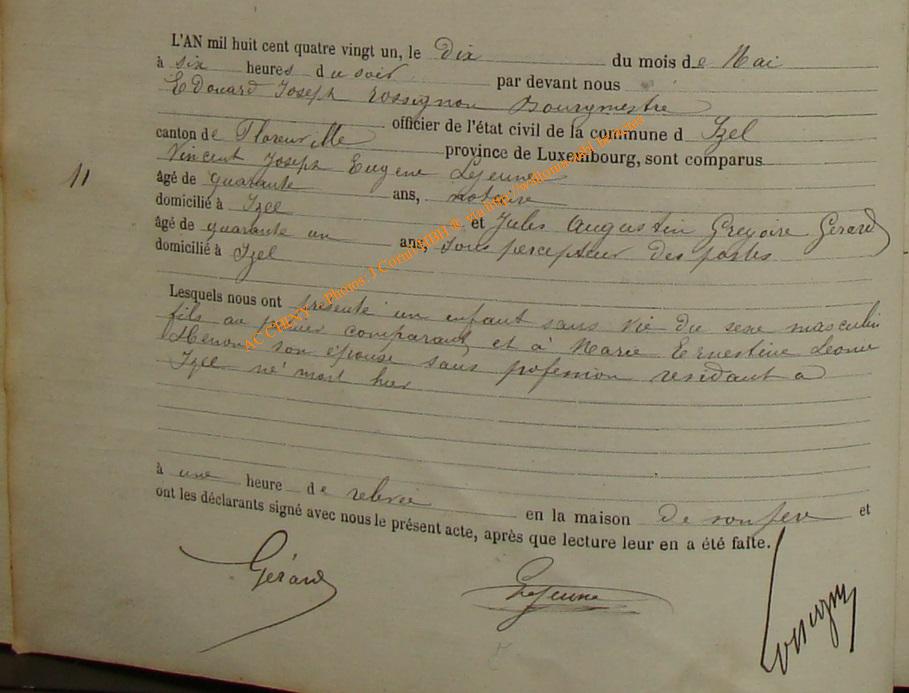 L'AN mil huit cent quatre vingt un, le dix du mois de Mai
à six heures du soir par devant nous
Edouard Joseph Rossignon Bourgmestre
officier de l'état civil de la commune d Izel
canton de Florenville province de Luxembourg, sont comparus
Vincent Joseph Eugène Lejeune
11
âgé de quarante ans, notaire
domicilié à Izel et Jules Augustin Gregoire Gerard
âgé de quarante un ans, sous percepteur des postes
domicilié à Izel
Lesquels nous ont présenté un enfant sans vie du sexe masculin
fils au premier comparant et à Marie Ernestine Leonie
son épouse sans profession residant a
Izel né mort hier
à une heure de relevée en la maison de son père et
ont les déclarants signé avec nous le présent acte, après que lecture leur en a été faite.
Gérard Lejeune Rossignon
ACCHENY - Photos: J Comet IBH & via http://wallonia